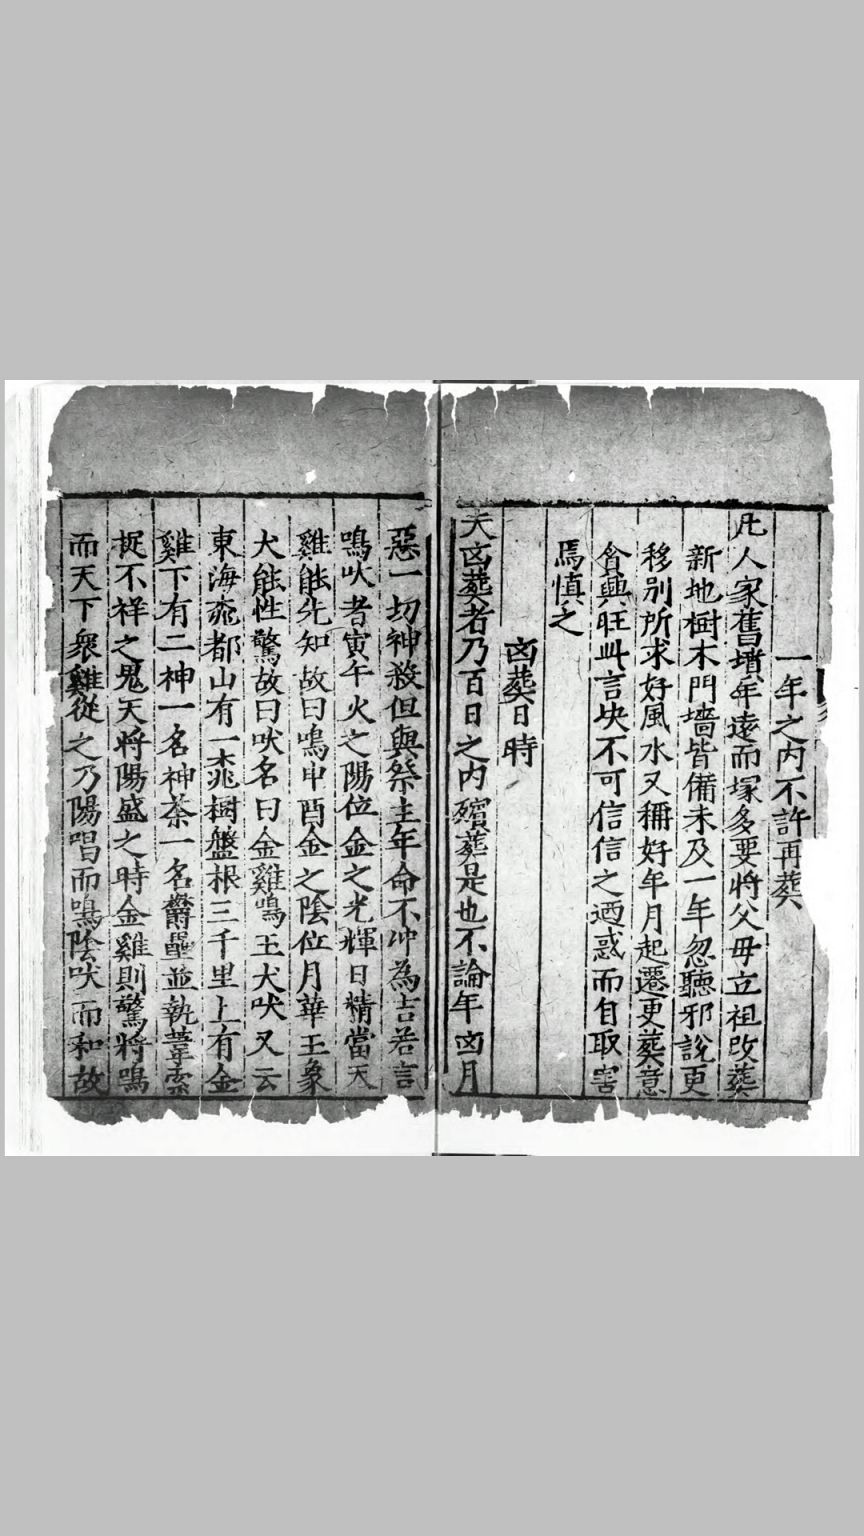 一年之内不許再葬
凡人家舊墳年逺而塚多要將父母立祖改葬
新地樹木門墻皆備未及一年忽聽邪說更
移别所求好風水又稱好年月起遷更葬意
會興旺此言决不可信信之迺惑而自取害
焉慎之
凶葬日時
夫凶葬者乃百日之内殯葬是也不論年凶月
惡一切神殺但與祭主年命不冲為吉若言
鳴吠者寅午火之陽位金之光輝日精當天
雞能先知故曰鳴申酉金之陰位月華王象
犬能性驚故曰吠名曰金雞鳴玉犬吠又云
東海兗都山有一桃樹盤根三千里上有金
雞下有二神一名神荼一名欝壘並執葦索
捉不祥之鬼天將陽盛之時金雞則驚將鳴
而天下衆雞從之乃陽唱而鳴陰吠而和故